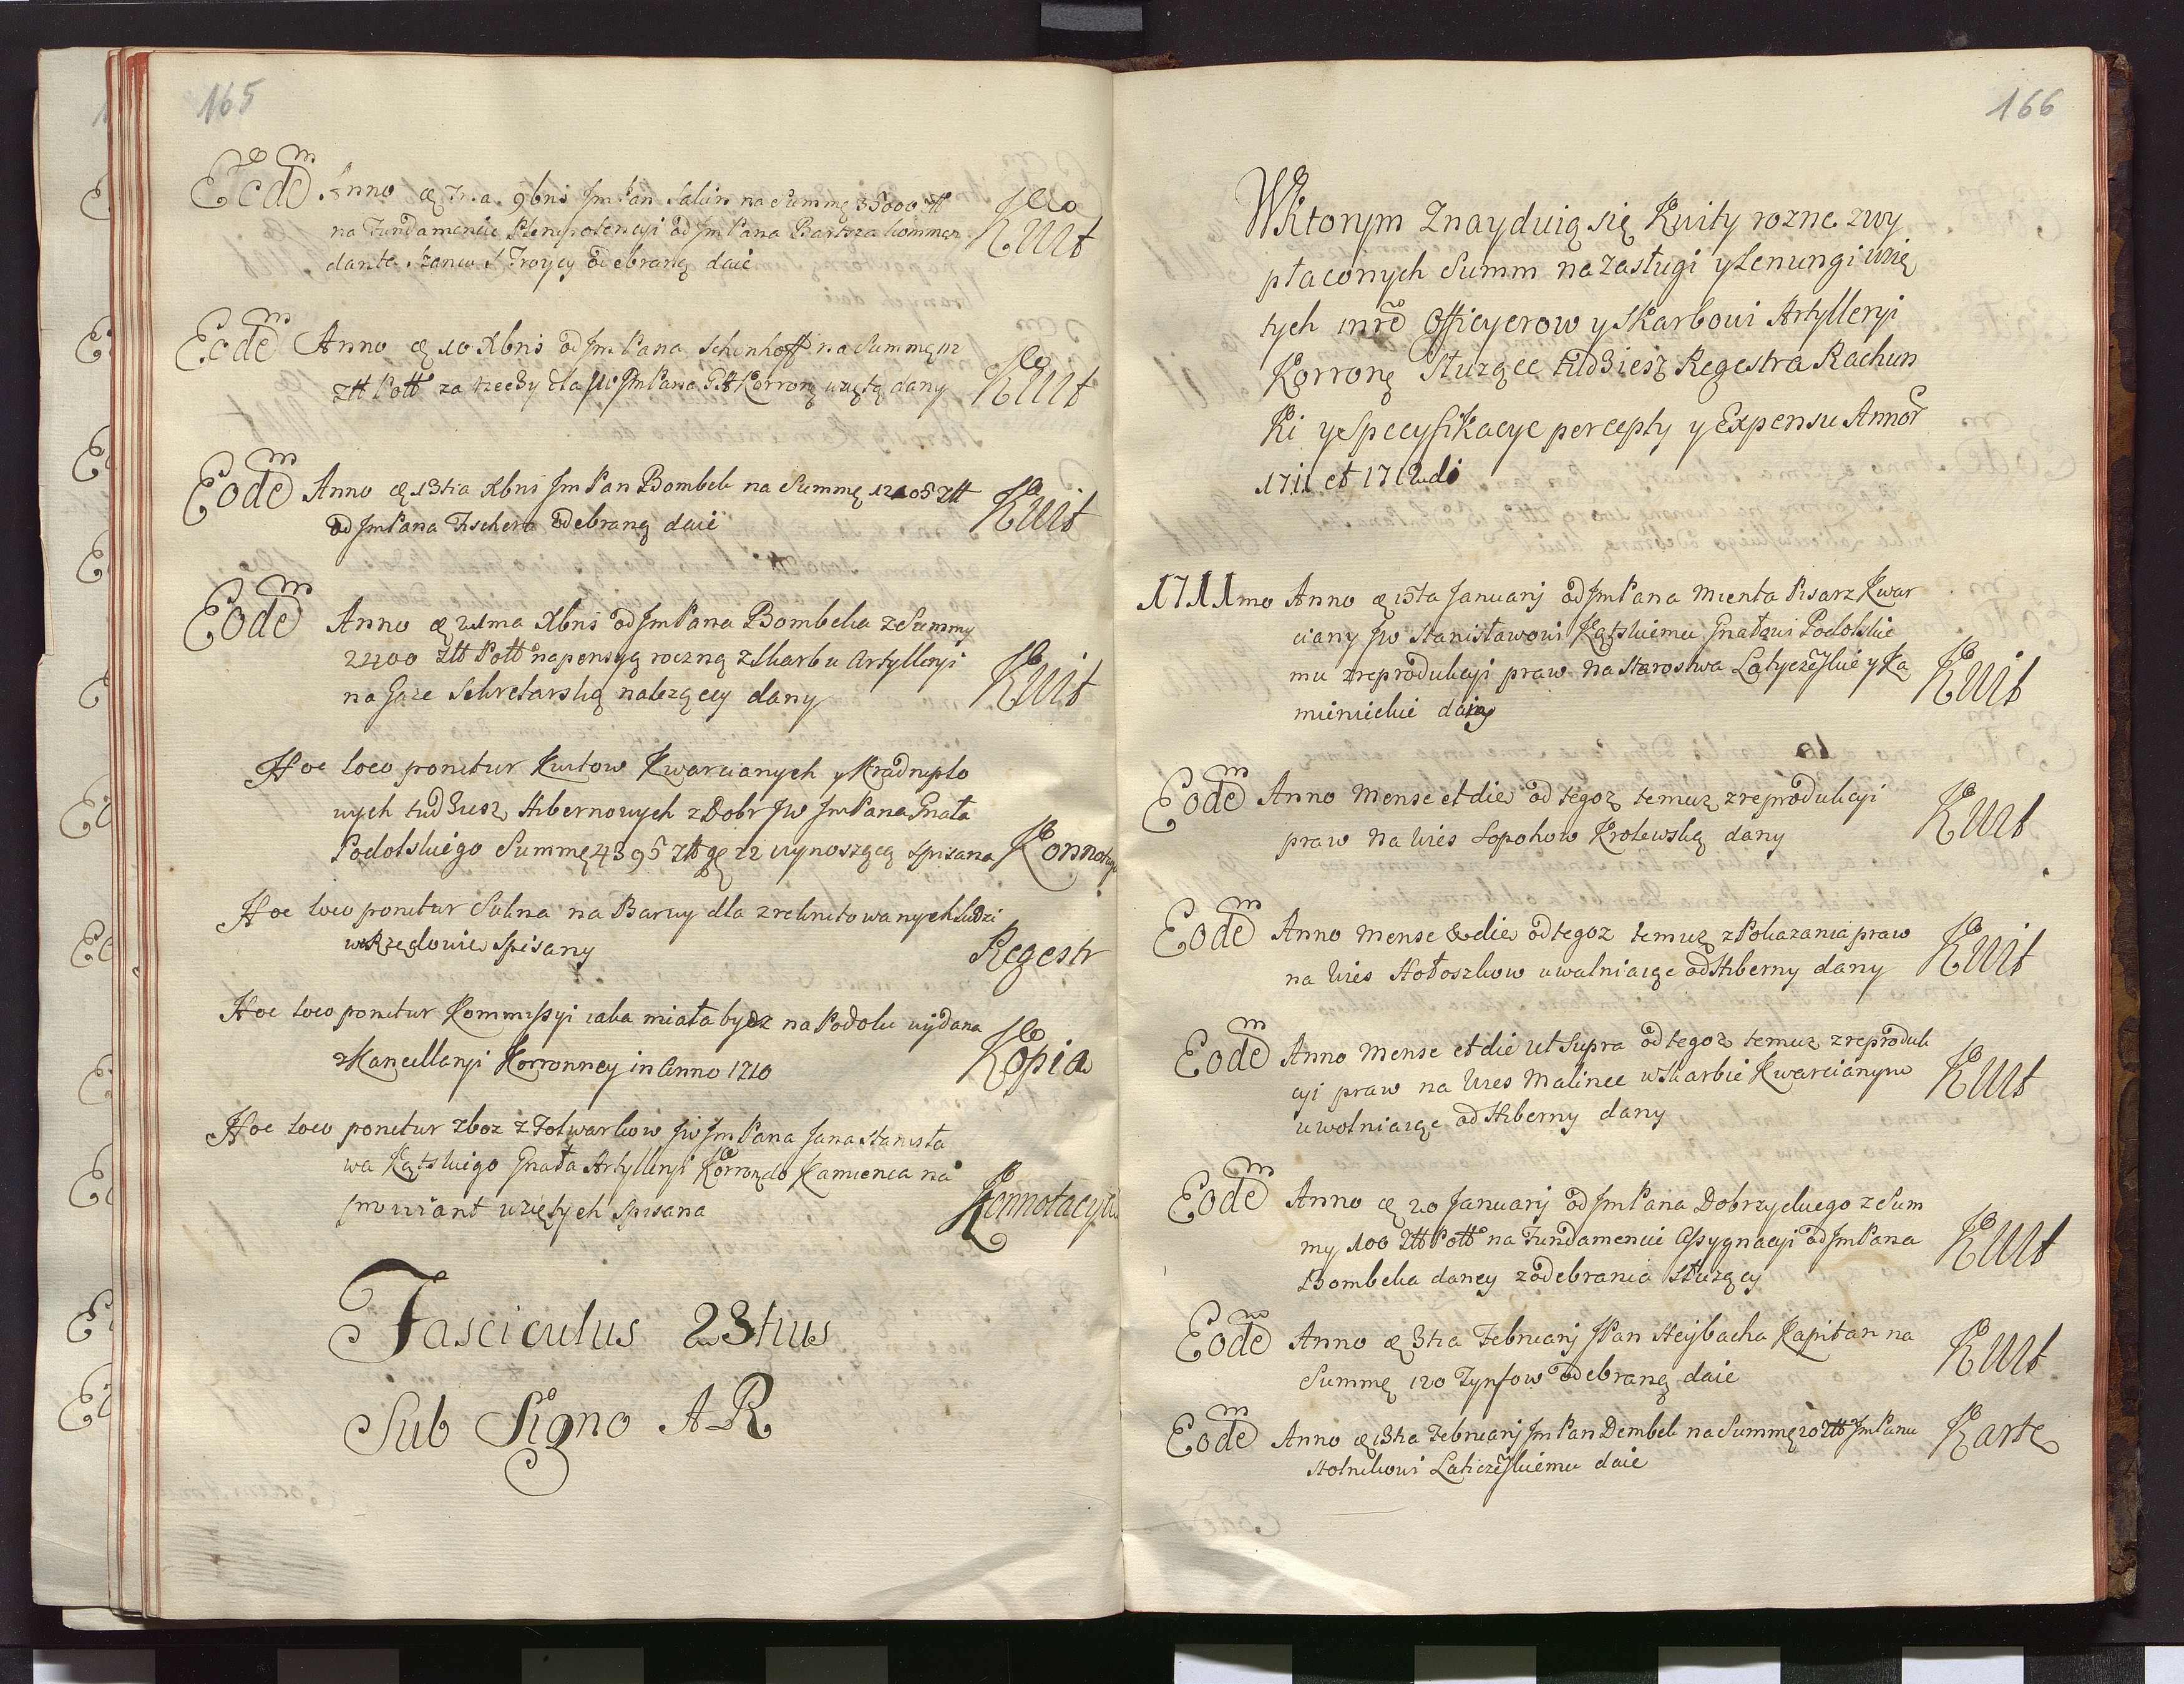 165
Eodem Anno 9bris Jm Pan Salis na Summę 35000 ztt Kwit
na Fundamencie Plenipotencyi od Jm Pana Bartsza Kommen
danta Szancu S Troycy odebraną daie
Eodem Anno die 10 Xbris od Jm Pana Schenhoff na Summę
ztt Poll za rzeczy dla JW Jm Pana GA Korronę wziętą dany Kwit
Eodem Anno die 13tia Xbris Jm Pan Bombek na Summę 12105 ztt Kwit
od Jm Pana Fischera odebraną daie
Eodem Anno die 21ma Xbris od Jm Pana Bombeka z Summy
22400 Ztt Poll na pensyą roczną z Skarbu Artylleryi Kwit
na Gaże Sekretarską należącey dany
Hoc loco ponitur Kwitow Kwarcianych y Kradruplo
wych tudziesz Hibernowych z Dobr JW Jm Pana Gnała
Podolskiego Summę 4395 ztt gę 22 wynoszącą spisana Konnotacya
Hoc loco ponitur Sukna na Barwy dla zrekrutowanych ludzi
w Rzędowie Spisany Regestr
Hoc loco ponitur Kommissyi iaka miała bydz na Podolu wydana
z Kancellaryi Korronney in Anno 1710 Kopia
Hoc loco ponitur zboz z Folwarkow JW Jm Pana Jana Stanisła
wa Kątskiego Gnała Artylleryi Korron do Kamienca na
prowiant wziętych Spisana Konnotacya
Fasciculus 23tius
Sub Signo AR
166
W Ktorym Znayduią się Kwity rozne z wy
płaconych Summ na zasługi y Lenungi wzię
tych inrõ Officyerow y Skarbowi Artylleryi
Korronę Służące tudziesz Regestra Rachun
Ki y Specyfikacye percepty y Expensu Annor
1711 et 1712di
1711mo Anno die 15ta Januarj od Jm Pana Mienta Pisarz Kwar
ciany JW Stanisławowi Kątskiemu Gnałowi Podolskie
mu z reprodukcyi praw na Starostwa Latyczewskie y Ka Kwit
mienieckie dany
Eodem Anno Mense et die od tegoz temuz z reprodukcyi Kwit
praw na Wies Sopohow Krolewską dany
Eodem Anno Mense & die od tegoz temuz z Pokazania praw Kwit
na Wies Hołoszkow uwalniaiące od Hiberny dany
Eodem Anno Mense et die ut Supra od tegoz temuz z reproduk
cyi praw na Wies Malince w Skarbie Kwarcianym Kwit
uwolniaiące od Hiberny dany
Eodem Anno die 20 Januarj od Jm Pana Dobrzyckiego z Sum
my 100 Ztt Poll na Fundamencie Assygnacyi od Jm Pana Kwit
Bombeka daney z odebrania służący
Eodem Anno die 3tia Februarj JPan Heybacha Kapitan na Kwit
Summę 120 Tynfow odebraną daie
Eodem Anno die 13tia Februarj Jm Pan Dembek na Summę 20 Ztt Jm Panu Kartę
Stolnikowi Laticzewskiemu daie